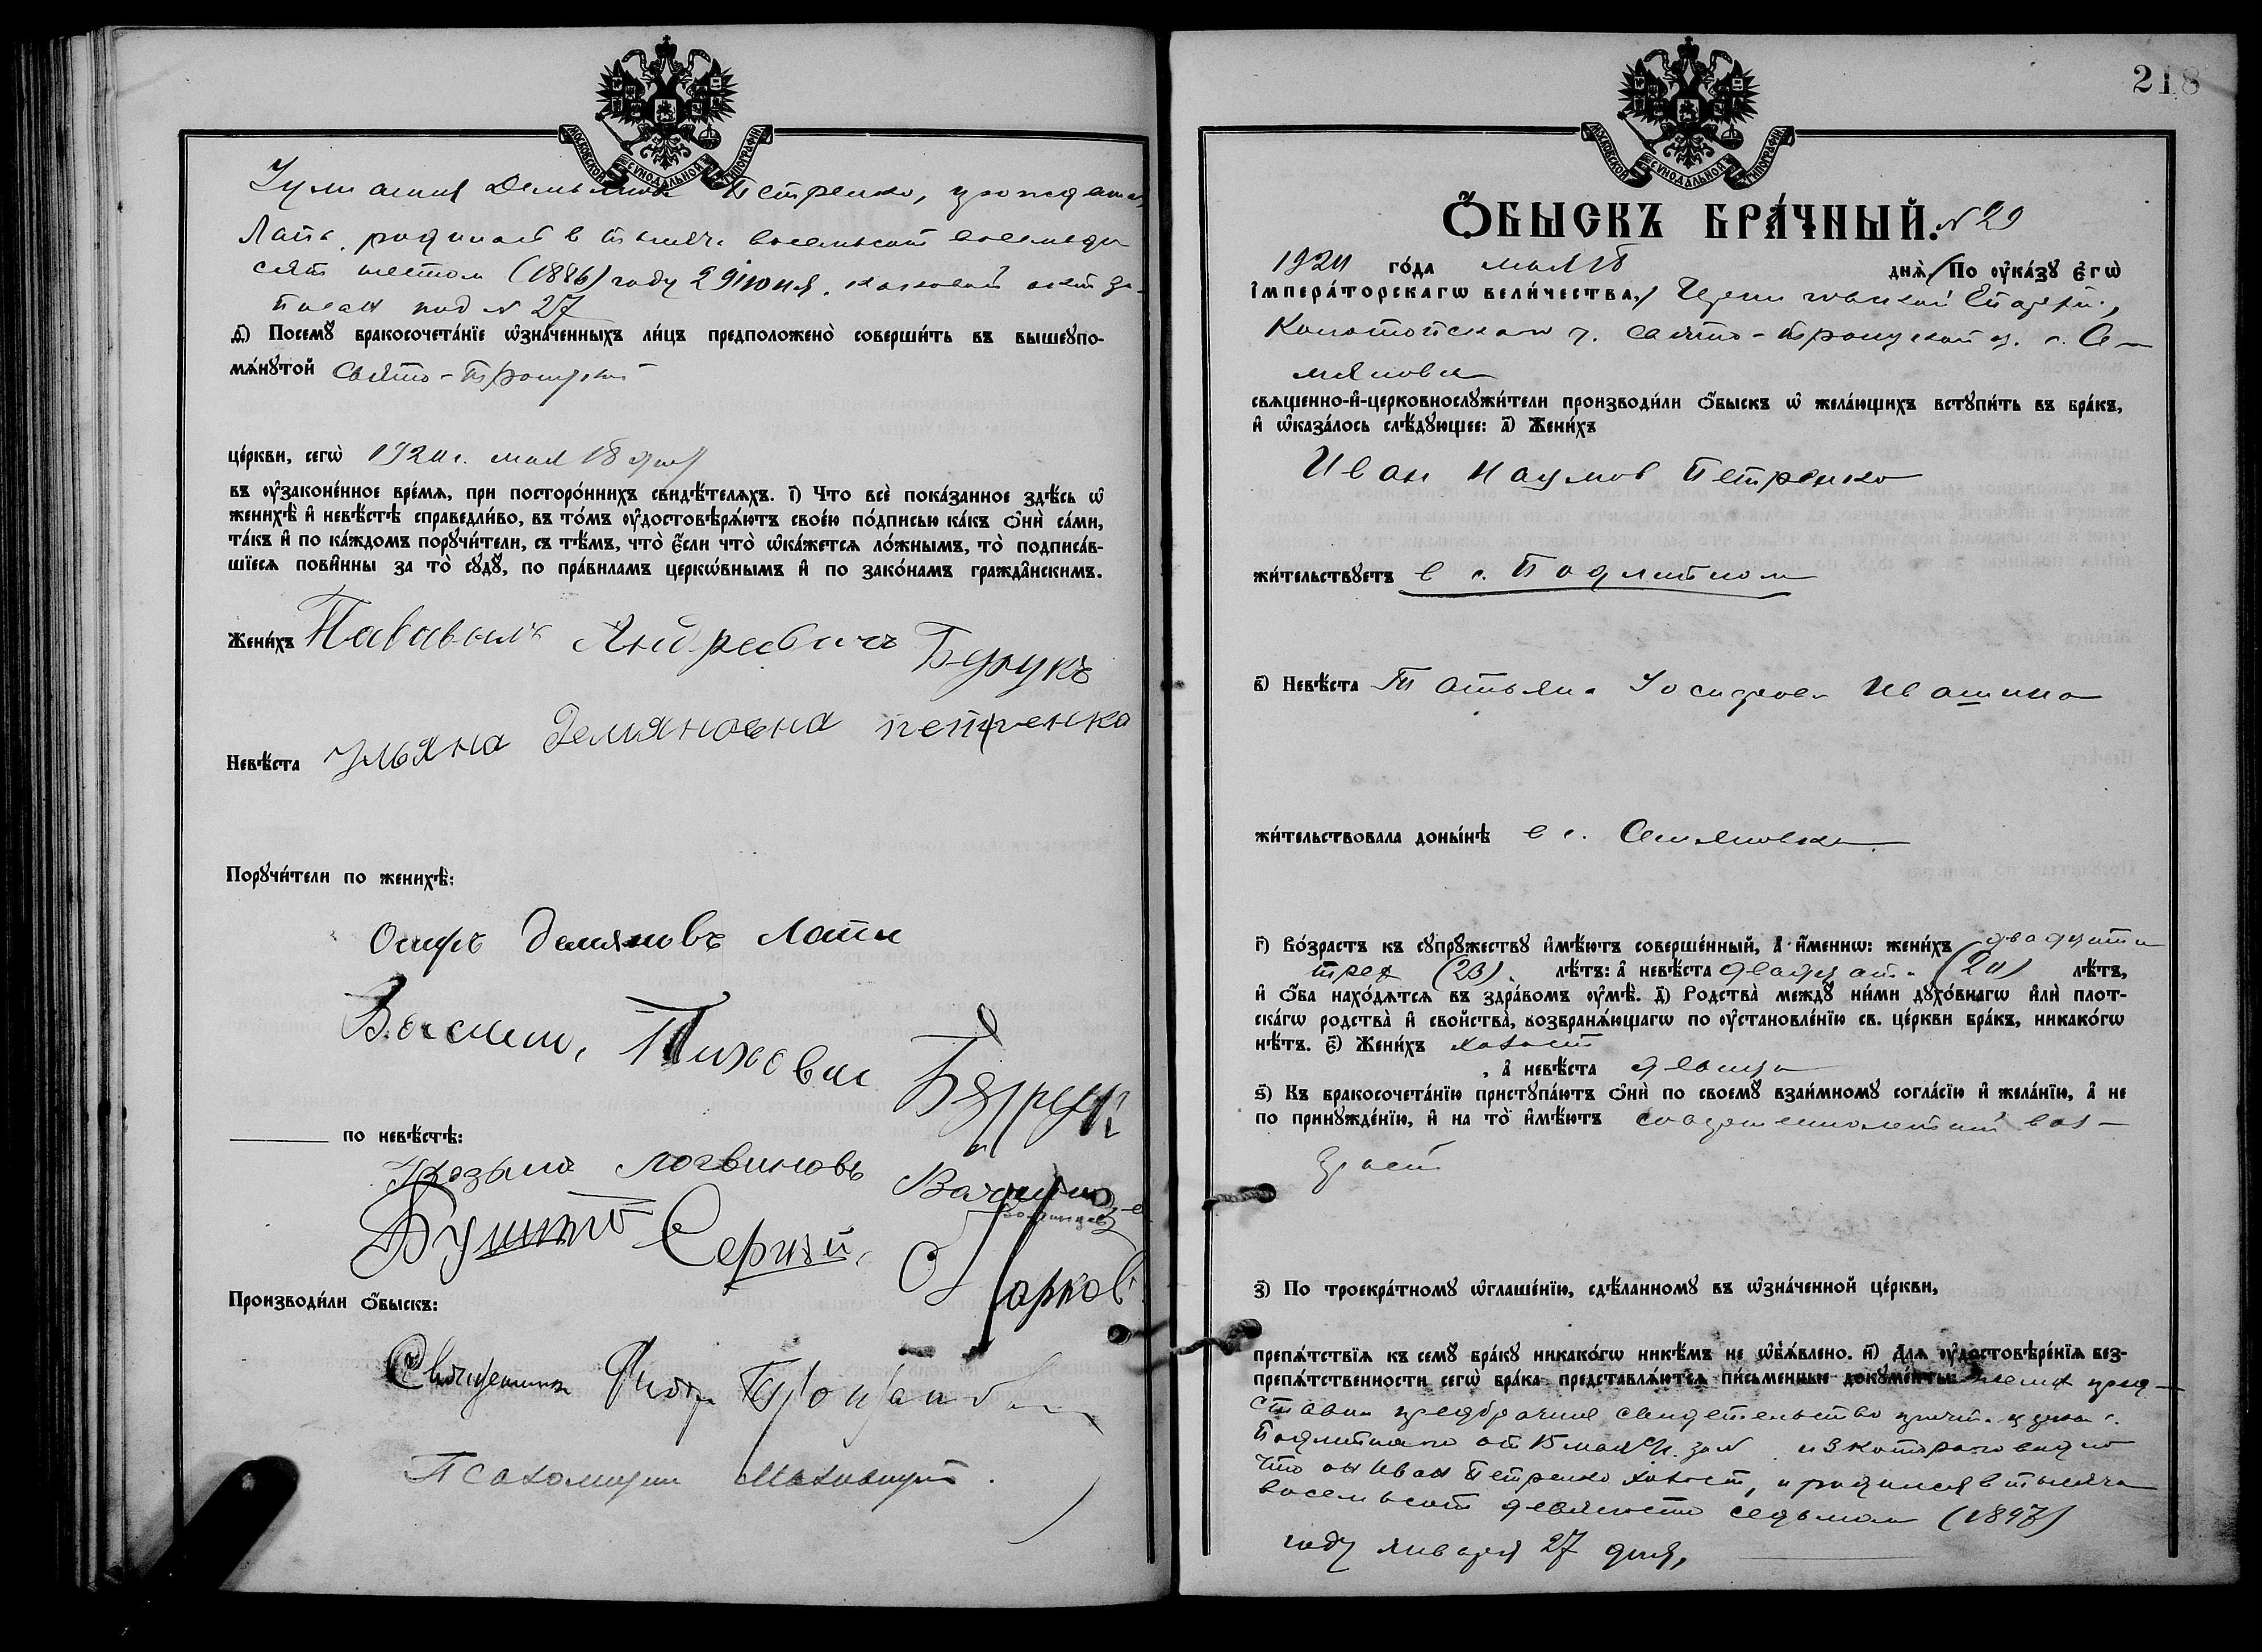 МОСКОВСКОЙ СѴНОДАЛЬНОЙ ТИПОГРАФІИ
Иулиания Демьянова Петренко, урожденая
Лапа, родилась в тысяча восемьсот восемьде
сят шестом (1886) году 29 июня, каковой акт за-
писан под № 27
д҃) Посемꙋ бракосочета́нїе ѡ҆зна́ченныхъ ли́цъ предположено̀ соверши́ть въ вышеꙋпо-
мѧ́нꙋтой Свято-Троицкой
це́ркви, сегѡ̀ 1920 г. мая 18 дня
въ ᲂу҆законе́нное вре́мѧ, при посторо́ннихъ свидѣ́телѧхъ. і҃) Что всѐ пока́занное здѣ́сь ѡ҆
женихѣ̀ и҆ невѣ́стѣ справедли́во, въ то́мъ ᲂу҆достовѣрѧ́ютъ свое́ю по́дписью ка́къ ѻ҆нѝ са́ми,
та́къ и҆ по ка́ждомъ порꙋчи́тели, съ тѣ́мъ, что̀ є҆́сли что̀ ѡ҆ка́жетсѧ ло́жнымъ, то̀ подписа́в-
шїесѧ пови́нны за то̀ сꙋдꙋ̀, по пра́виламъ церкѡ́внымъ и҆ по зако́намъ гражда̑нскимъ.
Жени́хъ Андреевичъ
Невѣ́ста Ульяна Демяновна петренка
Порꙋчи́тели по женихѣ̀:
Осипъ Демяновъ Лапа
по невѣ́стѣ:
Козьма Логвиновъ
Сергѣй
Производи́ли ѻ҆́быскъ:
Священник
Псаломщик
218
МОСКОВСКОЙ СѴНОДАЛЬНОЙ ТИПОГРАФІИ
Ѻ҆́БЫСКЪ БРА́ЧНЫЙ. № 29
1920 го́да мая 18 днѧ̀. / По ᲂу҆ка́зꙋ є҆гѡ̀
і҆мпера́торскагѡ вели́чества, / Черниговской Епархии,
Конотопскаго у. Свято-Троицкой ц. с. Се-
мяновки
свѧще́нно-и҆-церковнослꙋжи́тели производи́ли ѻ҆́быскъ ѡ҆ жела́ющихъ встꙋпи́ть въ бра́къ,
и҆ ѡ҆каза́лось слѣ́дꙋющее: а҃) Жени́хъ
Иван Наумов Петренко
жи́тельствꙋетъ в с. Подлипном
в҃) Невѣ́ста Татьяна Иосифова Ивашина
жи́тельствовала доны́нѣ в с. Семяновке
г҃) Во́зрастъ къ сꙋпрꙋ́жествꙋ и҆мѣ́ютъ соверше́нный, а҆ и҆́меннѡ: жени́хъ двадцати
трех (23) лѣ́тъ: а҆ невѣ́ста двадцати (20) лѣ́тъ,
и҆ ѻ҆́ба нахо́дѧтсѧ въ здра́вомъ ᲂу҆мѣ̀. д҃) Родства̀ междꙋ̀ ни́ми дꙋхо́внагѡ и҆лѝ плот-
ска́гѡ родства̀ и҆ сво́йства̀, возбранѧ́ющагѡ по ᲂу҆становле́нїю св. це́ркви бра́къ, никако́гѡ
нѣ́тъ. є҃) Жени́хъ холост
, а҆ невѣ́ста девица
ѕ҃) Къ бракосочета́нїю пристꙋпа́ютъ ѻ҆нѝ по своемꙋ̀ взаи́мномꙋ согла́сїю и҆ жела́нїю, а҆ не
по принꙋжде́нїю, и҆ на то̀ и҆мѣ́ютъ совершеннолетний воз-
раст
з҃) По троекра́тномꙋ ѡ҆глаше́нїю, сдѣ́ланномꙋ въ ѡ҆зна́ченной це́ркви,
препѧ́тствїѧ къ семꙋ̀ бра́кꙋ никако́гѡ никѣ́мъ не ѡ҆б̾ѧ́влено. и҃) Длѧ ᲂу҆достовѣре́нїѧ без-
препѧ́тственности сегѡ̀ бра́ка представлѧ́ютсѧ пи́сьменные докꙋме́нты: жених пред-
ставил предбрачное свидетельство причта церкви с.
Подлипнаго от 15 мая с/г. за № из которого видно
что он Иван Петренко холост, и родился в тысяча
восемьсот девяносто седьмом (1897)
году января 27 дня,